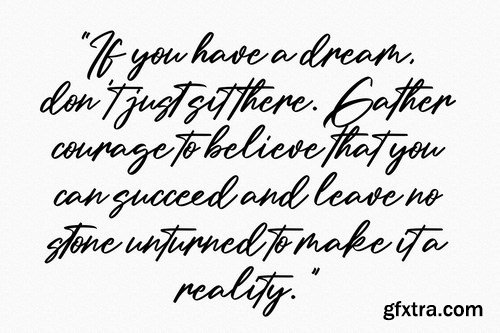 "If you have a dream,
don't just sit there. Gather
courage to believe that you
can succeed and leave no
stone unturned to make it a
reality."
gfxtra.com